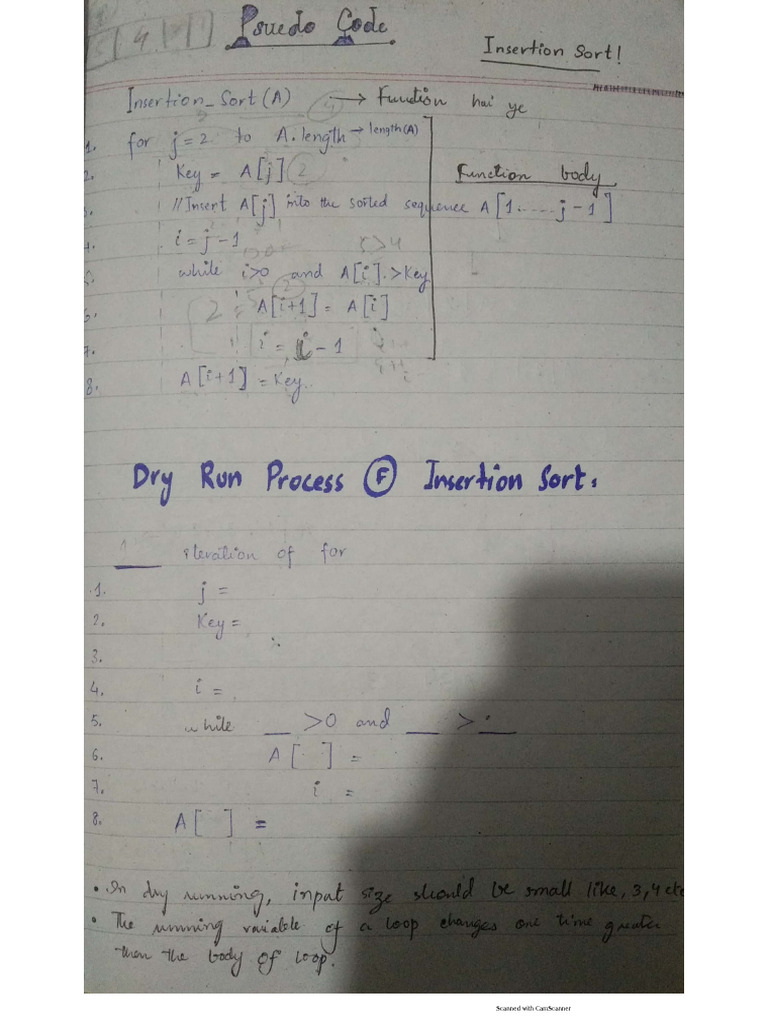 Psuedo Code
Insertion Sort!
Insertion_Sort (A) → Function hai ye
1. for j=2 to A.length → length(A)
2. Key = A[j]
Function body
3. //Insert A[j] into the sorted sequence A[1.....j-1]
4. i = j-1
5. while i>0 and A[i].>Key
6. A[i+1] = A[i]
7. i = i - 1
8. A[i+1] = Key.
Dry Run Process F Insertion Sort:
1 iteration of for
1. j =
2. Key =
3.
4. i =
5. while __ >0 and __ > __
6. A[ ] =
7. i =
8. A[ ] =
• In dry running, input size should be small like, 3,4 etc
• The running variable of a loop changes one time greater
then the body of loop.
Scanned with CamScanner